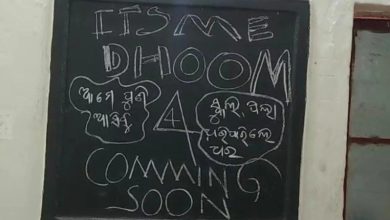 ITS ME
DHOOM
4
ଆମେ ପୁଣି
ଆସିବୁ
ସ୍କୁଲ ପିଲା
ଘର
COMMING
SOON